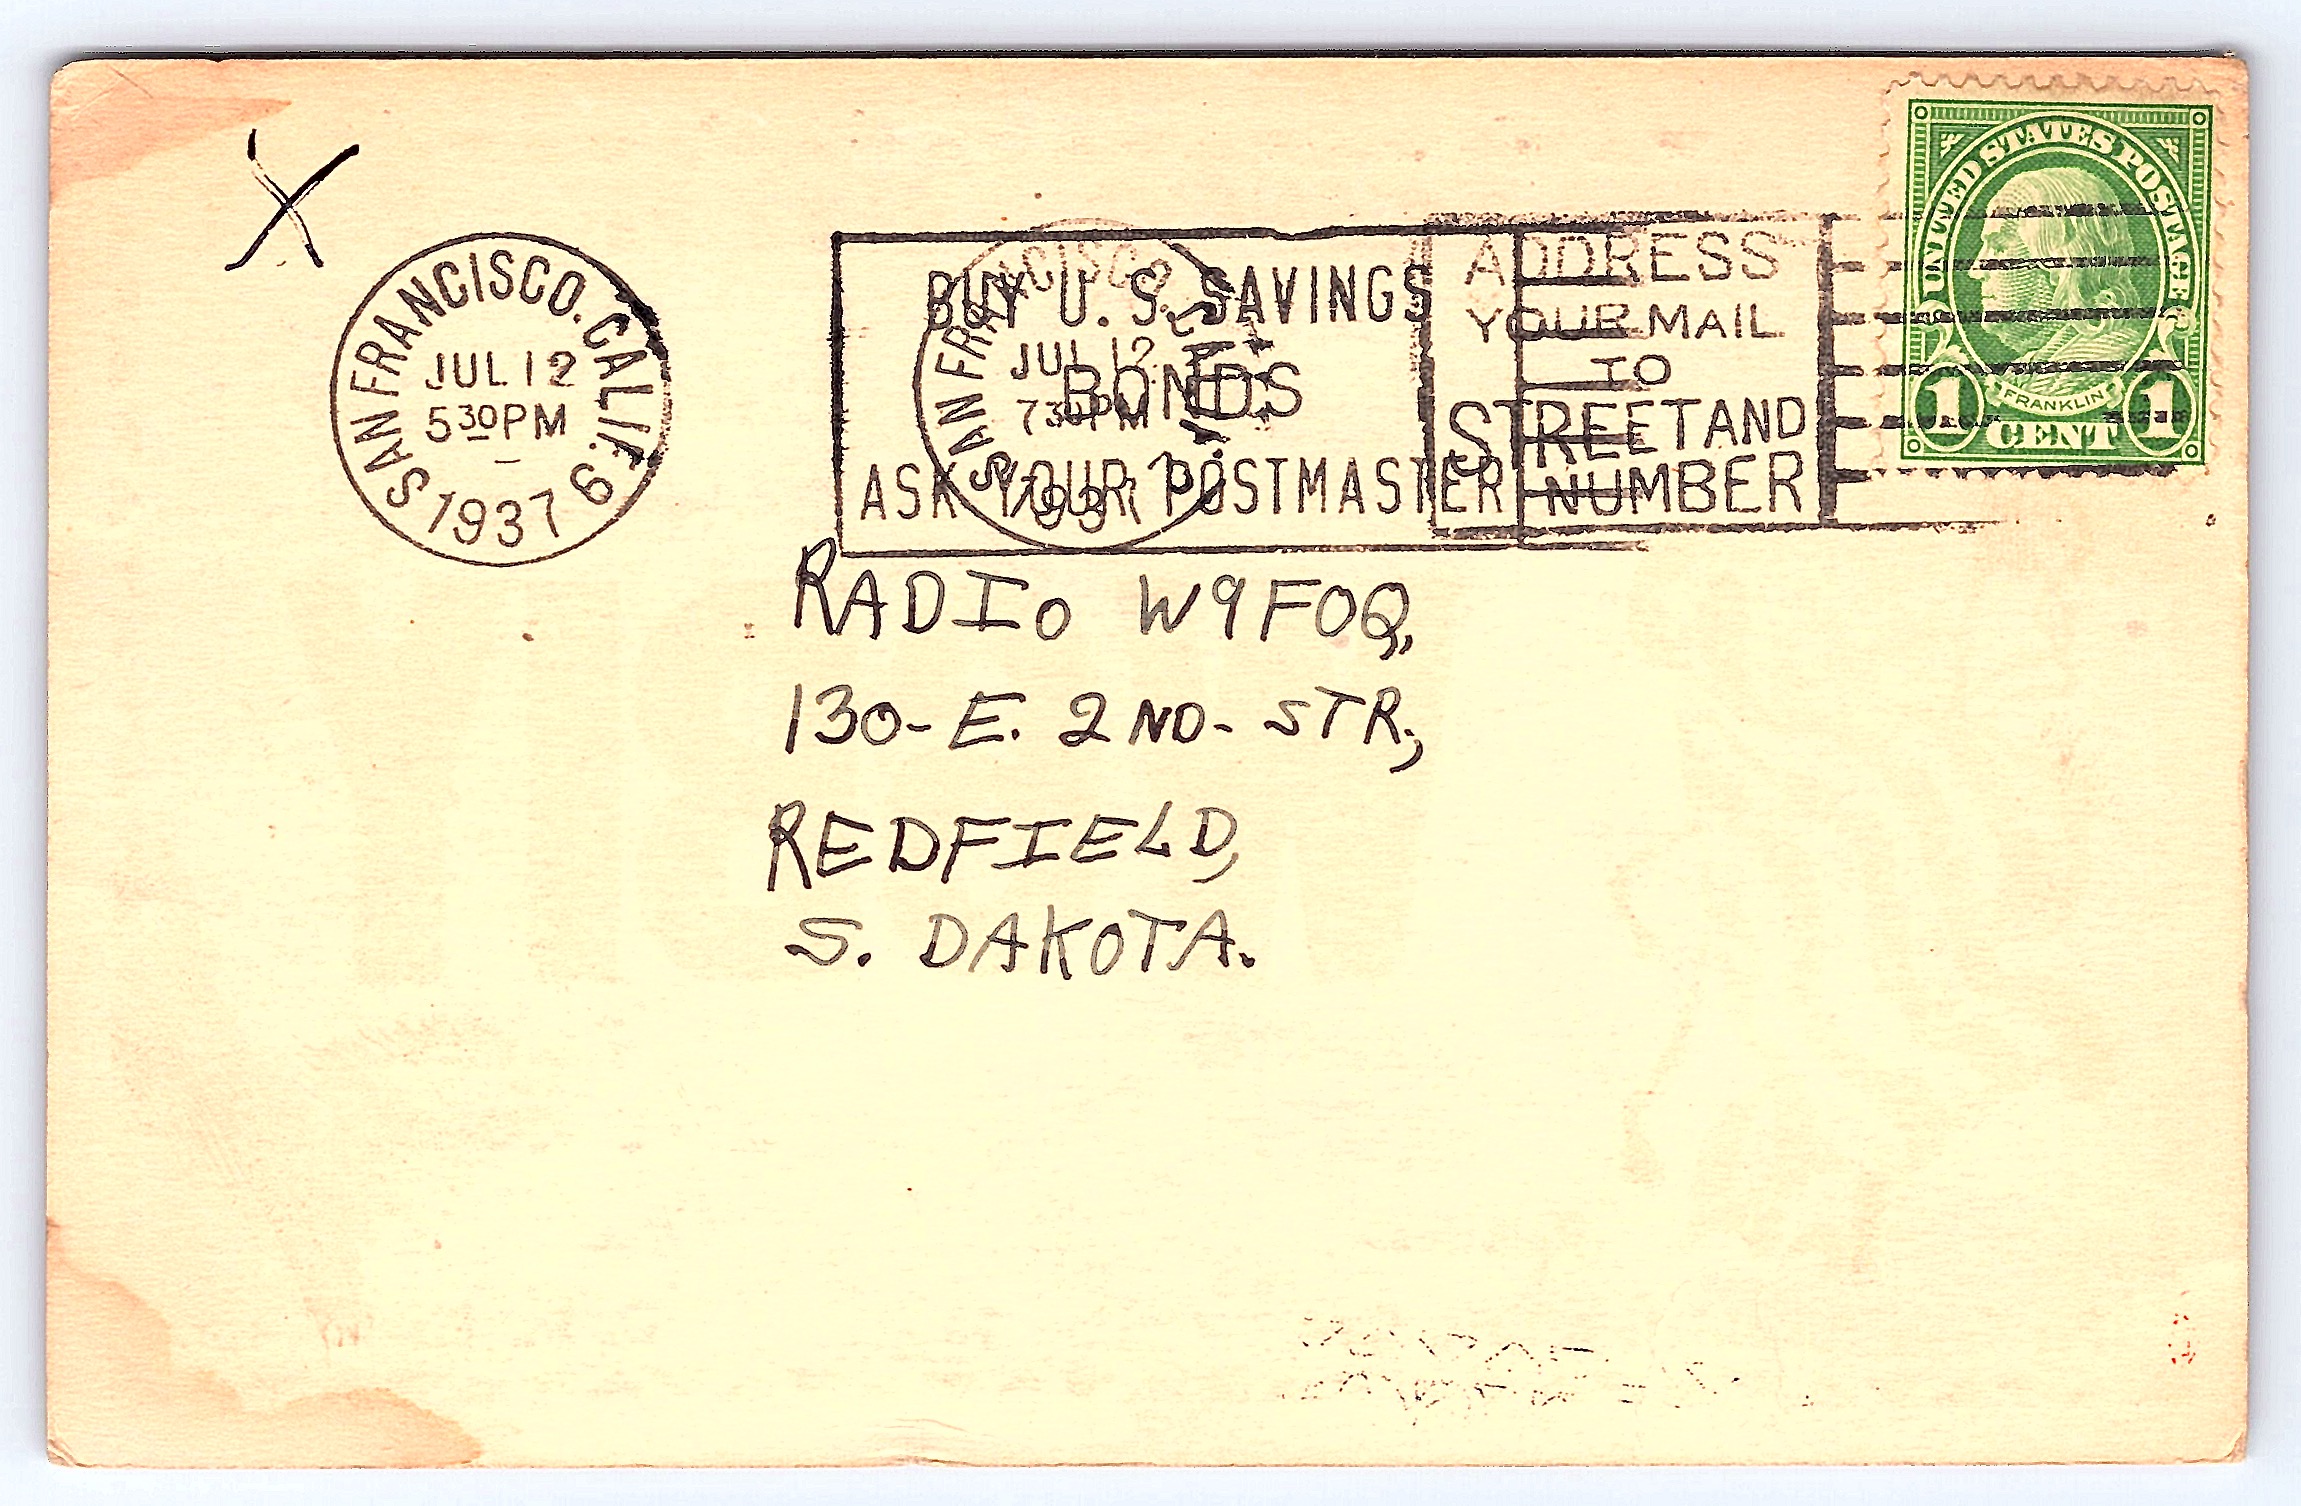 X
SAN FRANCISCO. CALIF. 6
JUL 12
5 30 PM
1937
BUY U. S. SAVINGS
BONDS
ASK YOUR POSTMASTER
SAN FRANCISCO
JUL 12
7 30 PM
1937
ADDRESS
YOUR MAIL
TO
STREET AND
NUMBER
UNITED STATES POSTAGE
FRANKLIN
1 CENT 1
RADIO W9FOQ,
130- E. 2 ND- STR.,
REDFIELD,
S. DAKOTA.